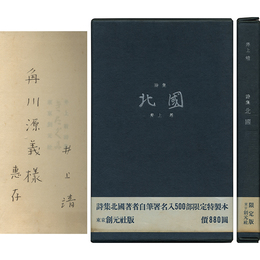 角川源義様
恵存
井上靖
詩集
北國
井上靖
詩集北國著者自筆署名入500部限定特製本
東京 創元社版
價880圓
井上靖
詩集 北國
限定版
東京創元社